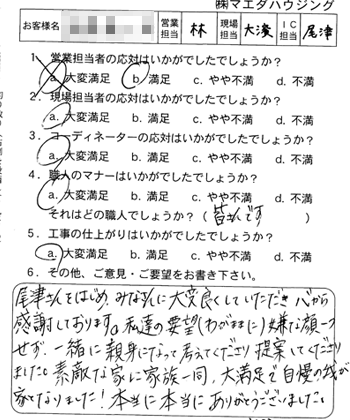 ㈱マエダハウジング
お客様名 営業担当 林 現場担当 大濱 IC担当 尾津
1．営業担当者の応対はいかがでしたでしょうか？
a. 大変満足 b. 満足 c. やや不満 d. 不満
2．現場担当者の応対はいかがでしたでしょうか？
a. 大変満足 b. 満足 c. やや不満 d. 不満
3．コーディネーターの応対はいかがでしたでしょうか？
a. 大変満足 b. 満足 c. やや不満 d. 不満
4．職人のマナーはいかがでしたでしょうか？
a. 大変満足 b. 満足 c. やや不満 d. 不満
それはどの職人でしょうか？（ 皆さんです ）
5．工事の仕上がりはいかがでしたでしょうか？
a. 大変満足 b. 満足 c. やや不満 d. 不満
6．その他、ご意見・ご要望をお書き下さい。
尾津さんをはじめ、みなさんに大変良くしていただき 心から
感謝しております。私達の要望(わがままに)嫌な顔一つ
せず、一緒に親身になって考えてくださり 提案してくださり
ました。素敵な家に家族一同、大満足で自慢の我が
家となりました！本当に本当にありがとうございました。